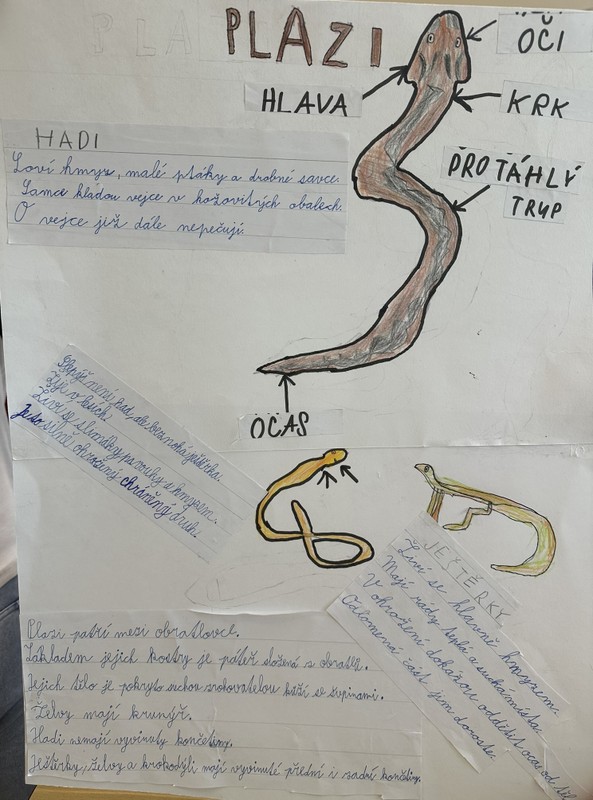 PLAZI
OČI
HLAVA
KRK
PROTÁHLÝ
TRUP
OČAS
HADI
Loví hmyz, malé ptáky a drobné savce.
Samce kladou vejce v kožovitých obalech.
O vejce již dále nepečují.
Slepýš není had, ale beznohá ještěrka.
Žije v lesích.
Živí se slimáky, pavouky a hmyzem.
Je to silně ohrožený chráněný druh.
JEŠTĚRKY
Živí se hlavně hmyzem.
Mají rády teplá a suchá místa.
V ohrožení dokážou oddělit ocas od těl
Odlomená část jim doroste.
Plazi patří mezi obratlovce.
Základem jejich kostry je páteř složená z obratlů.
Jejich tělo je pokryto suchou zrohovatělou kůží se šupinami.
Želvy mají krunýř.
Hadi nemají vyvinuty končetiny.
Ještěrky, želvy a krokodýli mají vyvinuté přední i zadní končetiny.